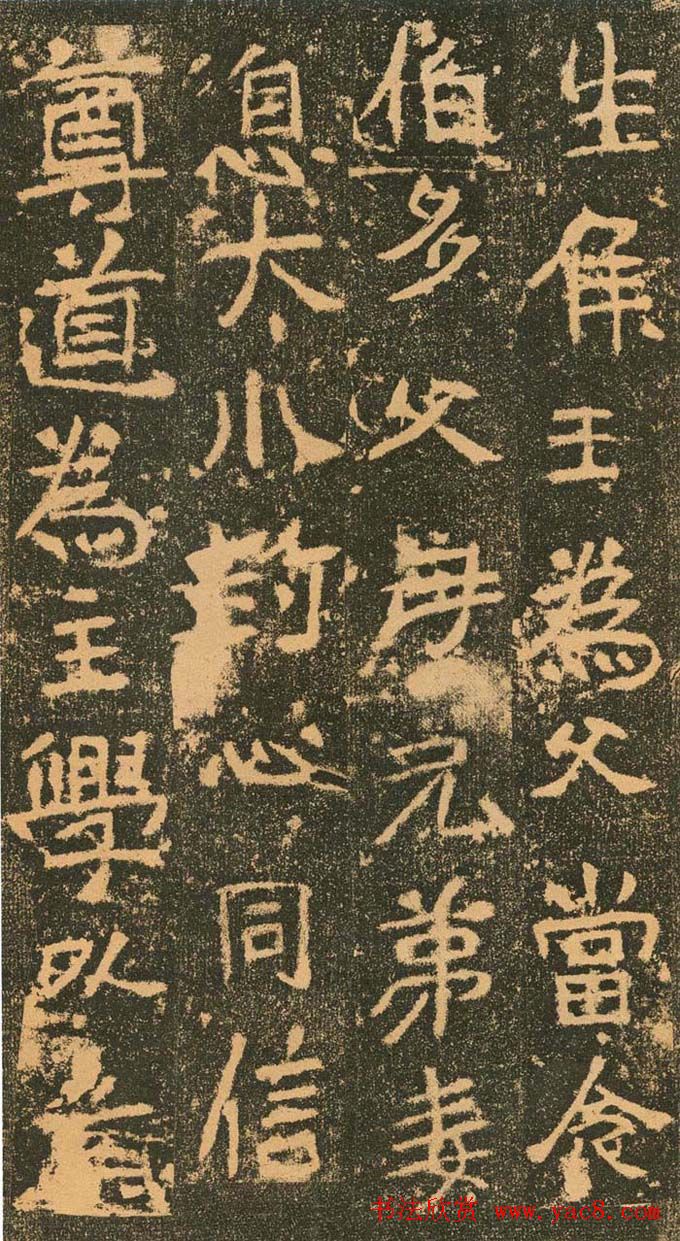 生侯王為父當念
伯多父母兄弟妻
息大小對心同信
尊道為主學以
书法欣赏 www.yac8.com